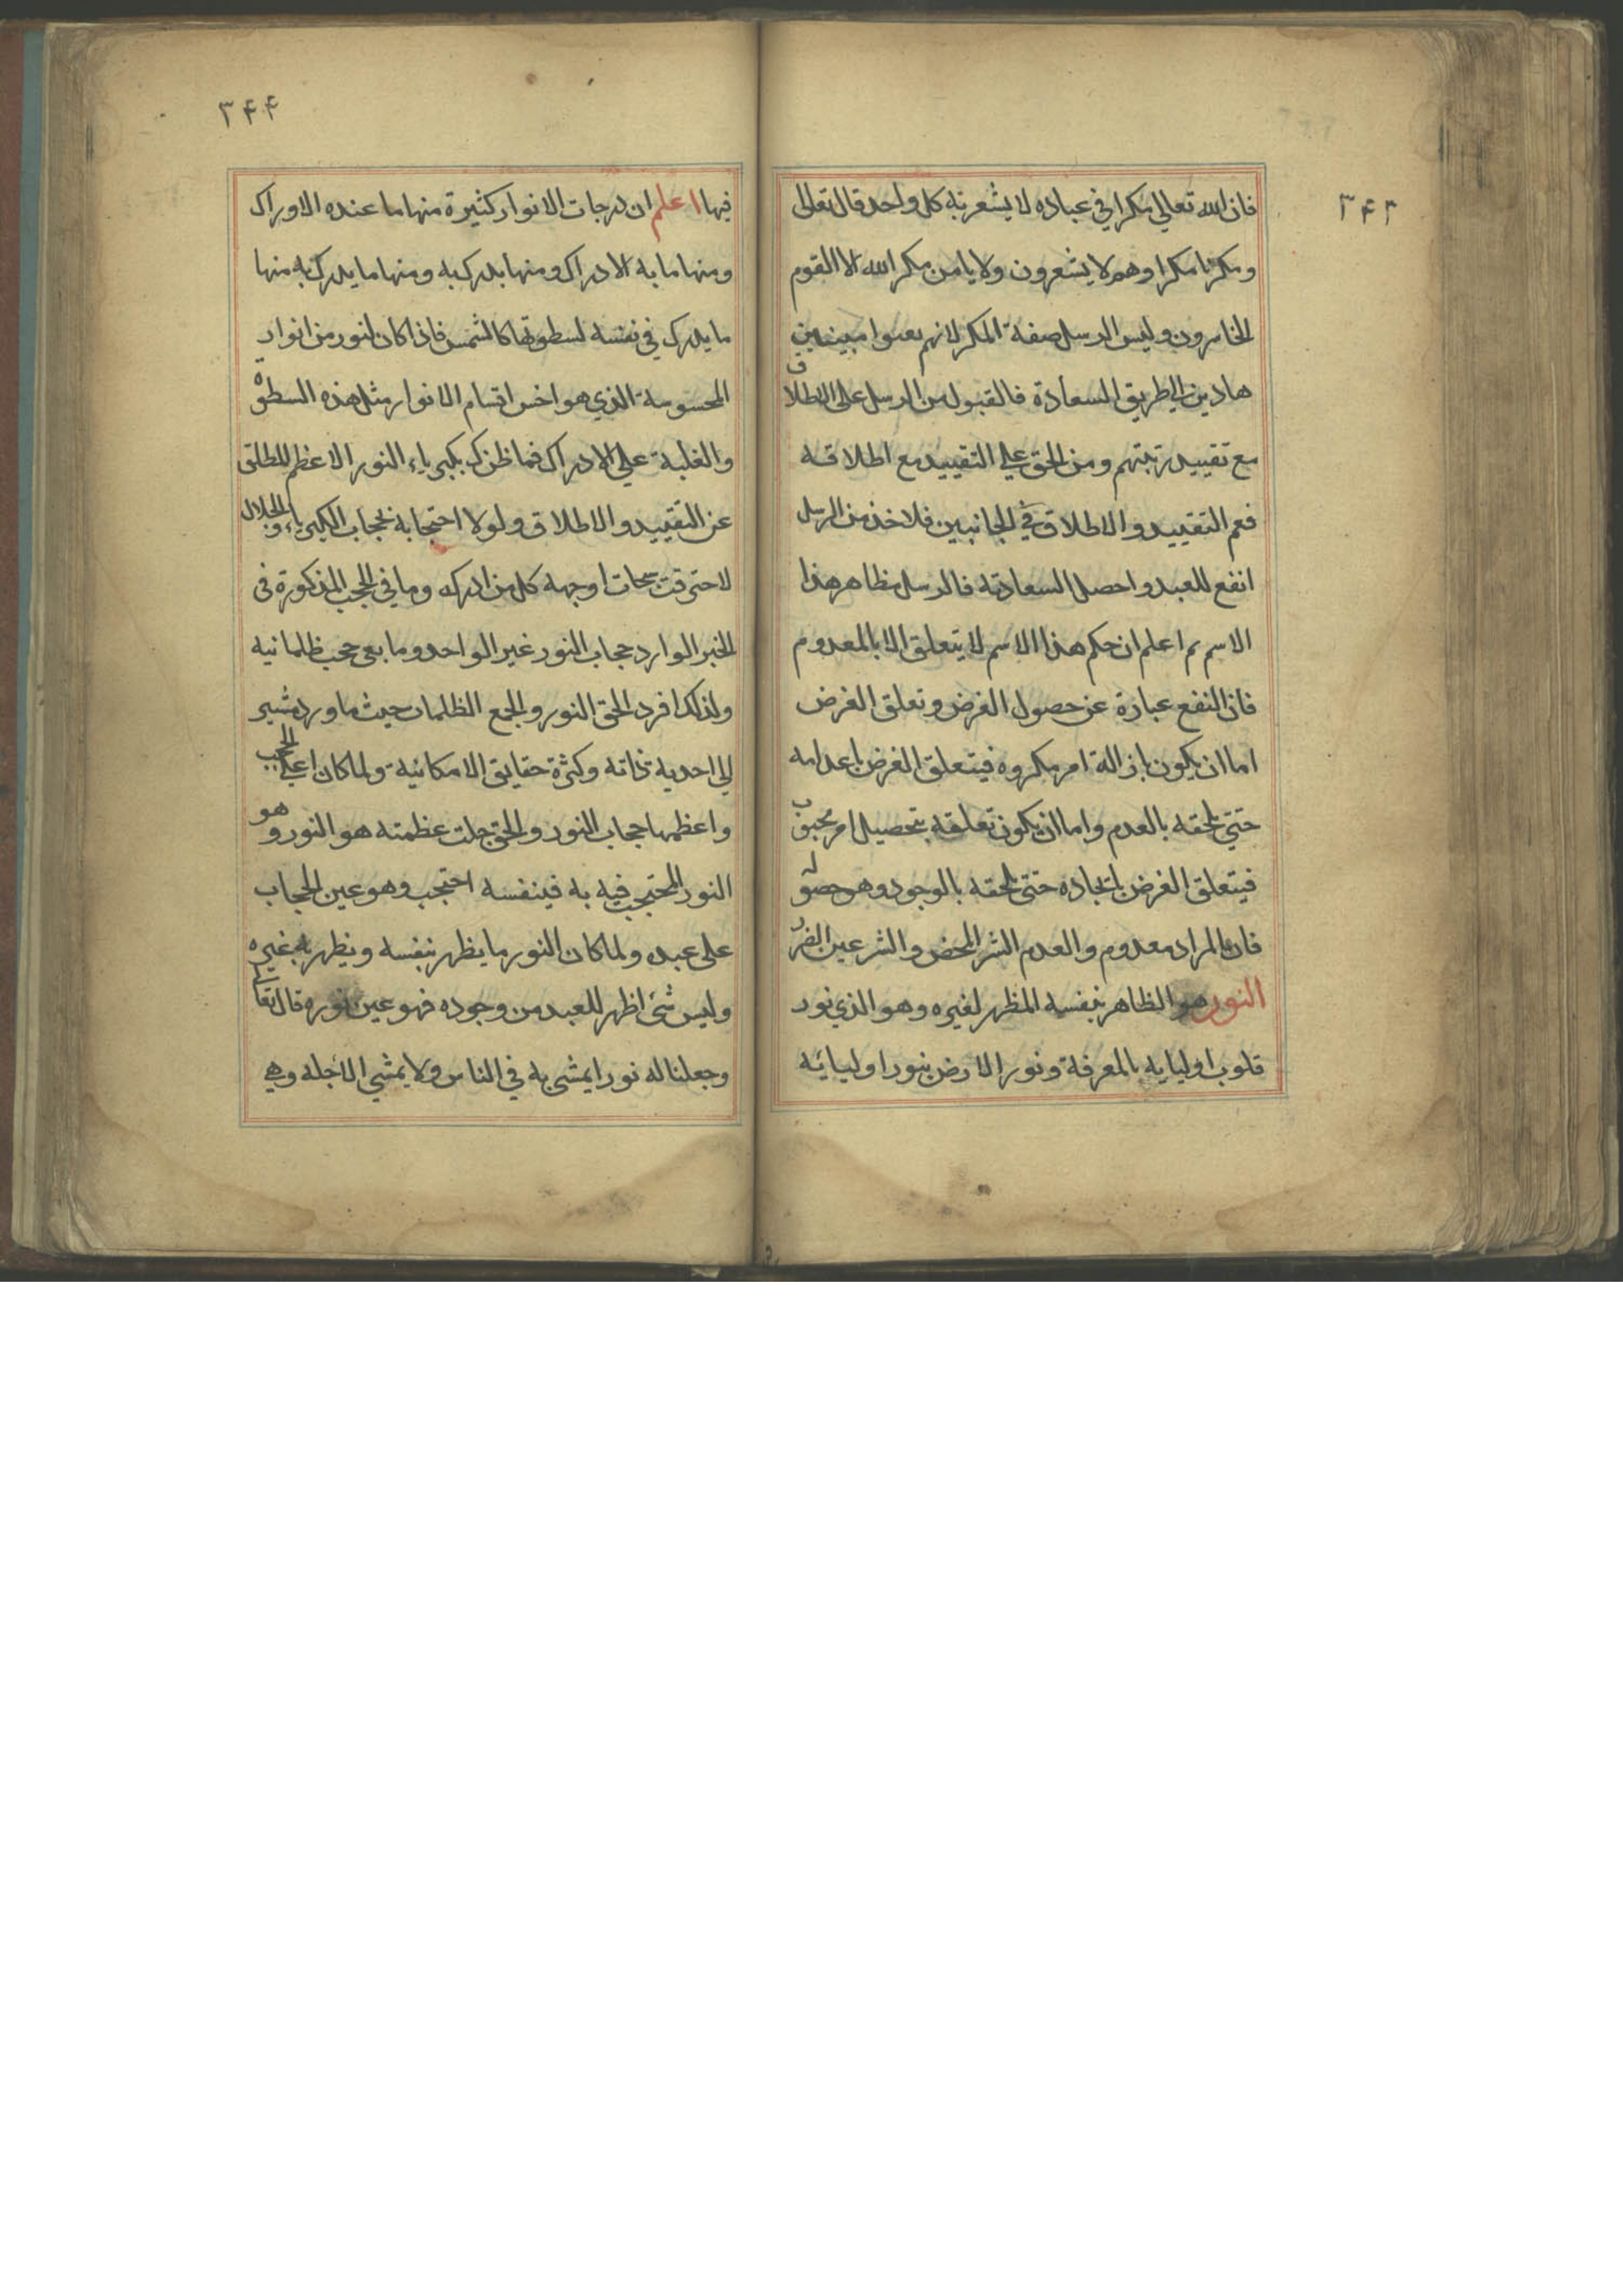 ۳۴۳
فان الله تعالى مكرا في عباده لا يشعر به كل واحد قال تعالى
ومكرنا مكرا وهم لا يشعرون ولا يامن مكر الله الا القوم
الخاسرون وليس الرسل صفة المكر لانهم بعثوا مبينين
هادين الى طريق السعادة فالقبول من الرسل على الاطلاق
مع تقييد رتبتهم ومن الحق على التقييد مع اطلاقه
فعم التقييد والاطلاق في الجانبين فلاخذ من الرسل
انفع للعبد واحصل السعادته فالرسل مظاهر هذا
الاسم ثم اعلم ان حكم هذا الاسم لا يتعلق الا بالمعدوم
فان النفع عبارة عن حصول الغرض وتعلق الغرض
اما ان يكون بازالة امر مكروه فيتعلق الغرض باعدامه
حتي تلحقه بالعدم واما ان يكون تعلقه بتحصيل امر محبوب
فيتعلق الغرض بايجاده حتى تلحقه بالوجود وهو حصوله
فان المراد معدوم والعدم الشر المحض والشر عين الضر
النور هو الظاهر بنفسه المظهر لغيره وهو الذي نور
قلوب اوليايه بالمعرفة ونور الارض بنور اوليائه
۳۴۴
فيها اعلم ان درجات الانوار كثيرة منها ما عنده الاوراك
ومنها ما به الادراك ومنها يدرك به ومنها ما يدرك به منها
ما يدرك في نفسه لسطوتها كالشمس فاذا كان لنور من انوار
المحسوسة الذي هو اخس اقسام الانوار مثل هذه السطوة
والغلبة على الادراك فما ظنك بكبرياء النور الاعظم المطلق
عن التقييد والاطلاق ولولا احتجابه بحجاب الكبرياء والجلال
لاحترقت سبحات اوجهه كل من ادركه وما في الحجب المذكورة في
الخبر الوارد حجاب النور غير الواحد وما بقى حجب ظلمانيه
ولذلك افرد الحق النور والجمع الظلمات حيث ما ورد مشير
الي احدية ذاته وكثرة حقايق الامكانية ولما كان اعلي الحجب
واعظمها حجاب النور والحق جلت عظمته هو النور وهو
النور المحتجب فيه به فبنفسه احتجب وهو عين الحجاب
على عبده ولما كان النور ما يظهر بنفسه ويظهر به غيره
وليس شئ اظهر للعبد من وجوده فهو عين نوره قال تعالى
وجعلنا له نورا يمشى به في الناس ولا يمشي الا جله وهي